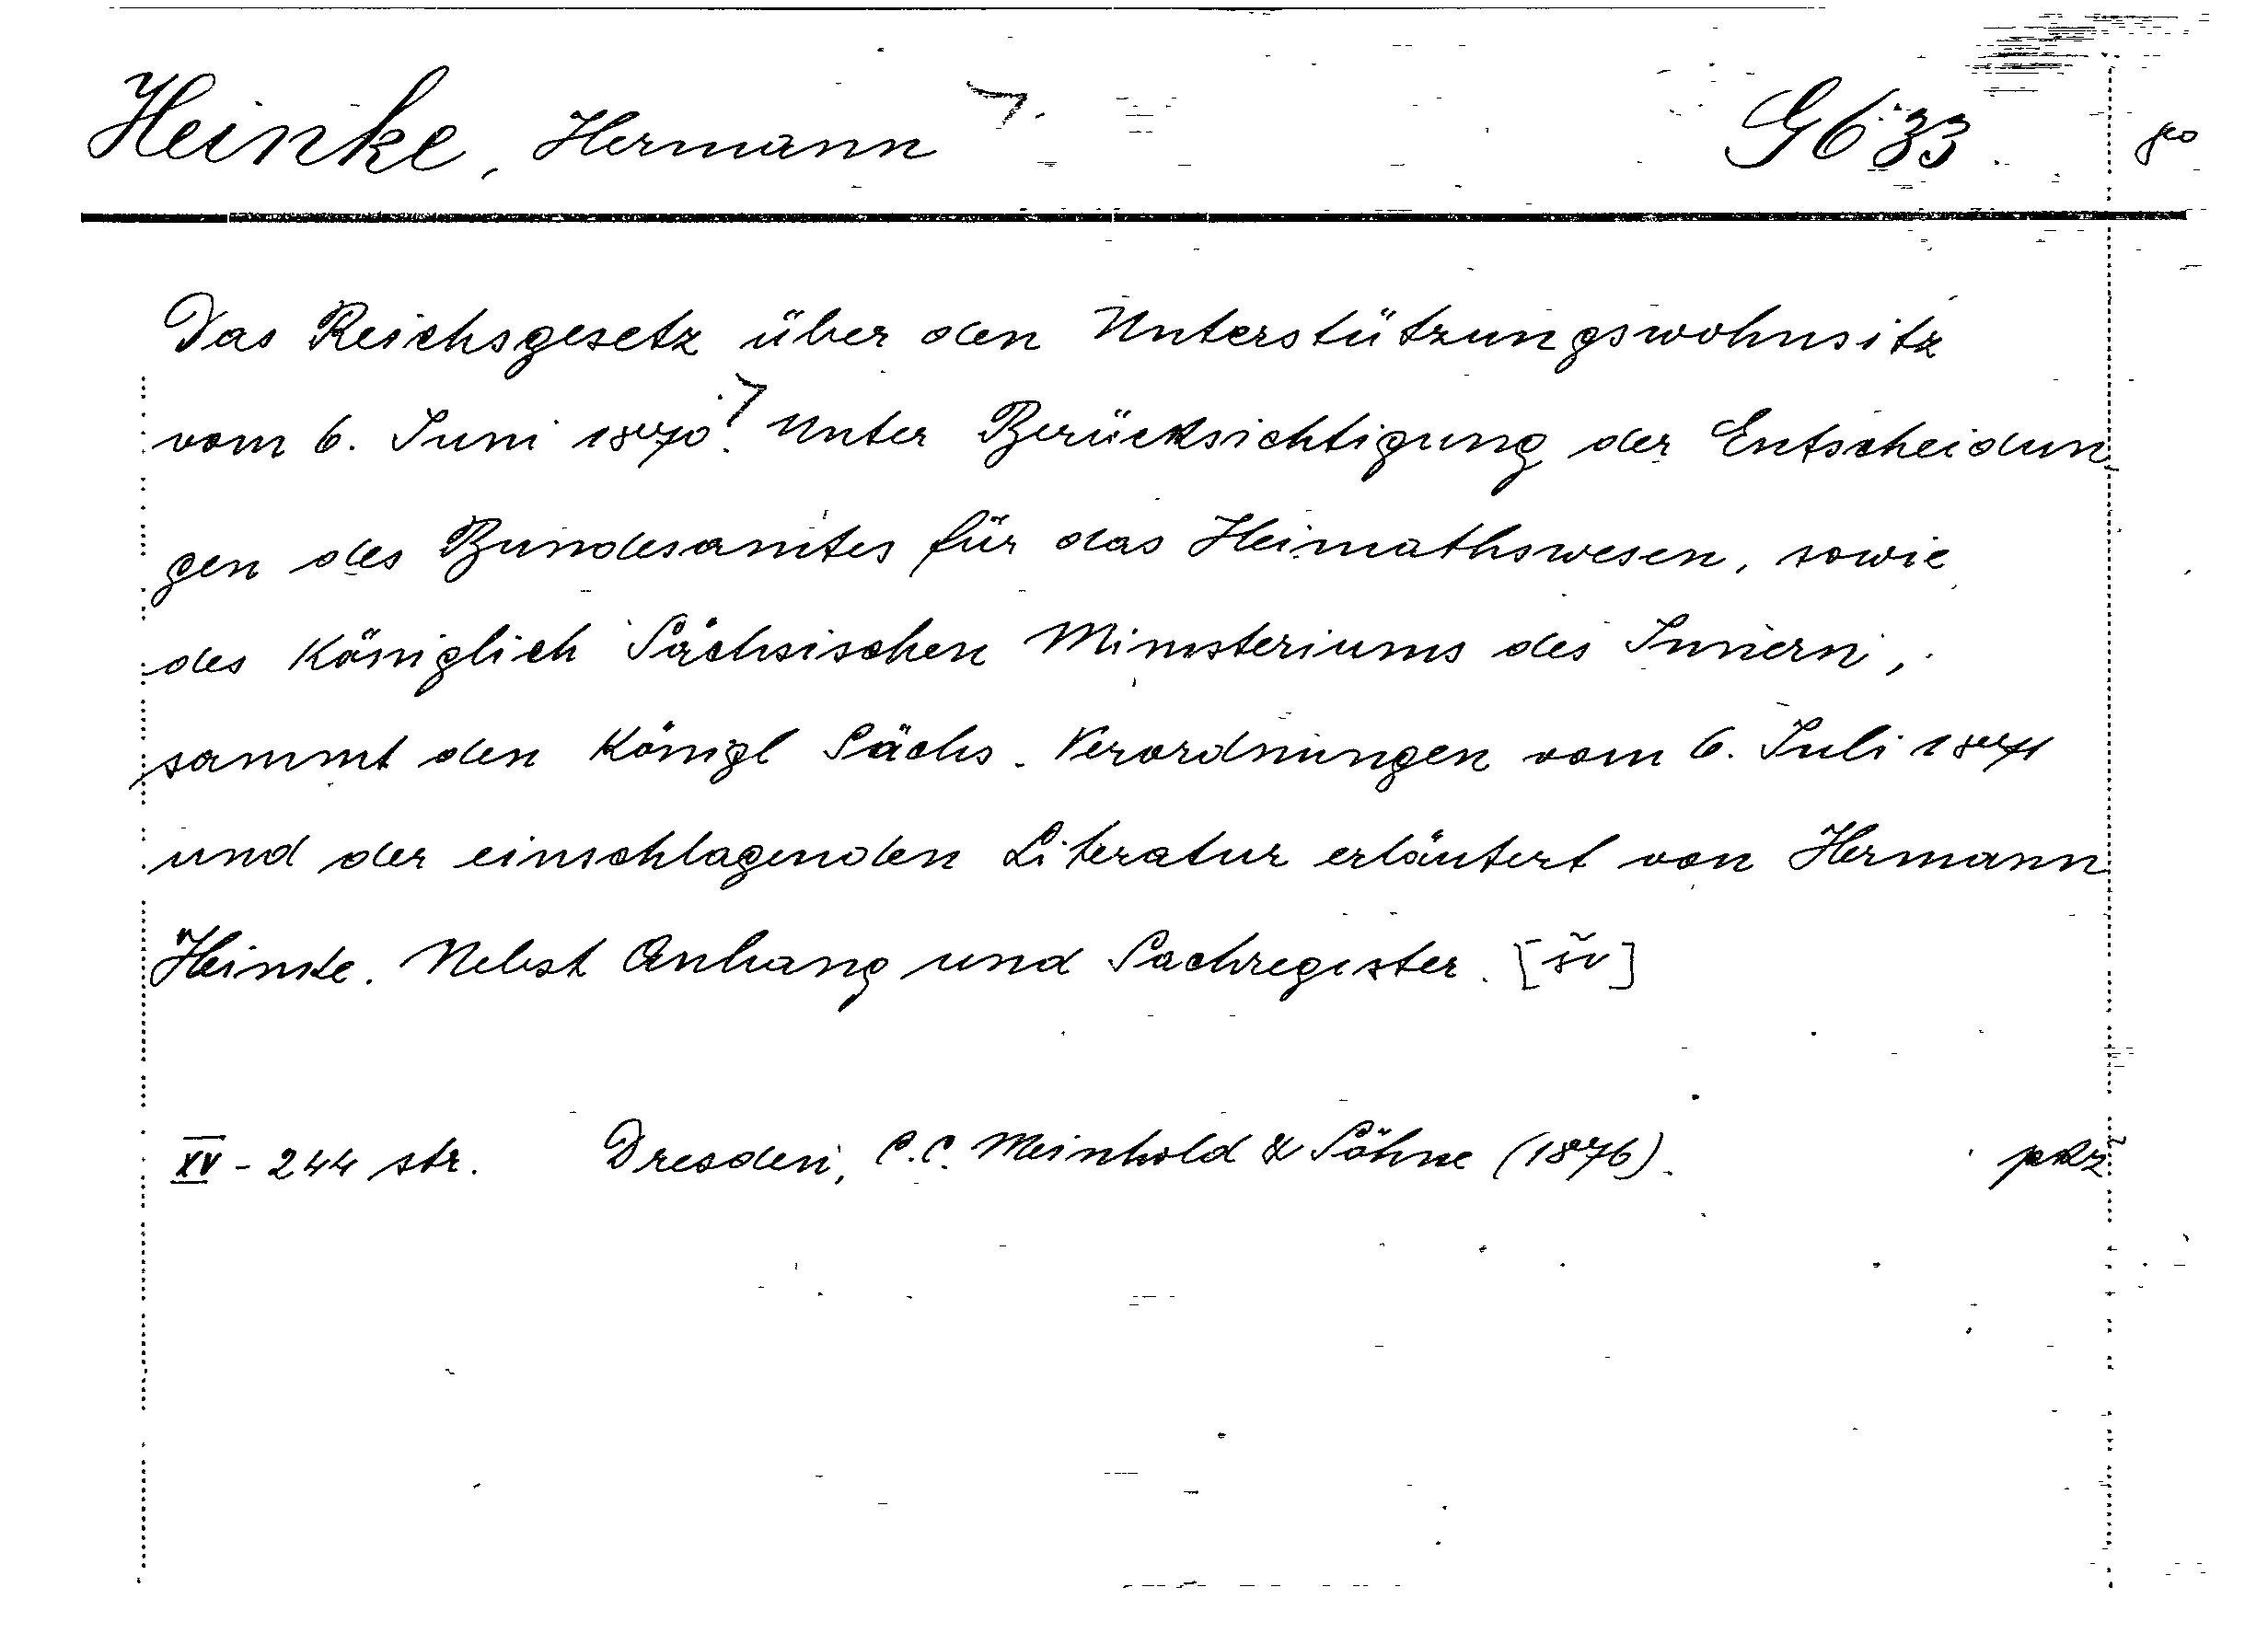 Heinke, Hermann G 633
Das Reichsgesetz über den Unterstützungswohnsitz
vom 6. Juni 1870. Unter Berücksichtigung der Entscheidun-
gen des Bundesamtes für das Heimathswesen, sowie
des Königlich Sächsischen Ministeriums des Innern,
sammt den Königl Sächs. Verordnungen vom 6. Juli 1871
und der einschlagenden Literatur erläutert von Hermann
Heinke. Nebst Anhang und Sachregister. [šv]
XV - 244 str. Dresden, C.C. Meinhold & Söhne (1876).